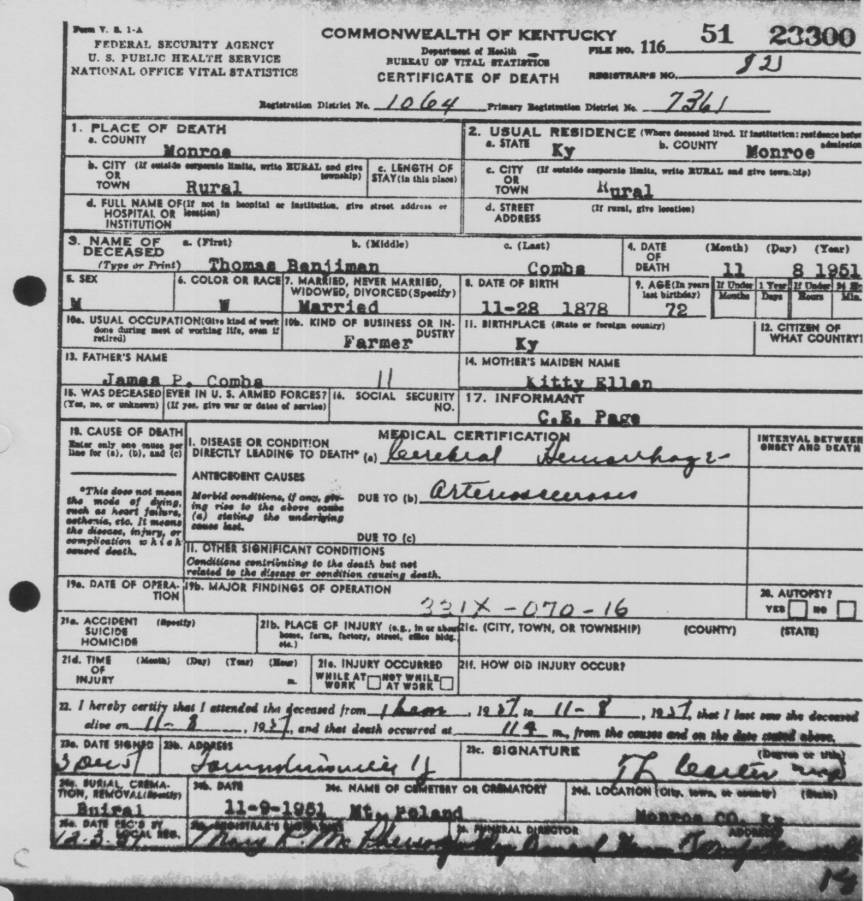 Form V. S. 1-A
FEDERAL SECURITY AGENCY
U. S. PUBLIC HEALTH SERVICE
NATIONAL OFFICE VITAL STATISTICS
COMMONWEALTH OF KENTUCKY
Department of Health
BUREAU OF VITAL STATISTICS
CERTIFICATE OF DEATH
FILE NO. 116 51 23300
REGISTRAR'S NO.
Registration District No. 1064 Primary Registration District No. 7361
1. PLACE OF DEATH
a. COUNTY
Monroe
2. USUAL RESIDENCE (Where deceased lived. If institution: residence before admission
a. STATE Ky b. COUNTY Monroe
b. CITY (If outside corporate limits, write RURAL and give township)
OR
TOWN Rural
c. LENGTH OF
STAY (in this place)
c. CITY (If outside corporate limits, write RURAL and give township)
OR
TOWN Rural
d. FULL NAME OF (If not in hospital or institution, give street address or
HOSPITAL OR location)
INSTITUTION
d. STREET (If rural, give location)
ADDRESS
3. NAME OF DECEASED
(Type or Print)
a. (First) b. (Middle) c. (Last)
Thomas Benjiman Combs
4. DATE OF DEATH (Month) (Day) (Year)
11 8 1951
5. SEX
M
6. COLOR OR RACE
W
7. MARRIED, NEVER MARRIED,
WIDOWED, DIVORCED (Specify)
Married
8. DATE OF BIRTH
11-28 1878
9. AGE (In years last birthday)
72
If Under 1 Year
Months Days
If Under 24 Hrs
Hours Min.
10a. USUAL OCCUPATION (Give kind of work
done during most of working life, even if
retired)
10b. KIND OF BUSINESS OR INDUSTRY
Farmer
11. BIRTHPLACE (State or foreign country)
Ky
12. CITIZEN OF
WHAT COUNTRY?
13. FATHER'S NAME
James P. Combs 11
14. MOTHER'S MAIDEN NAME
Kitty Ellen
15. WAS DECEASED EVER IN U. S. ARMED FORCES?
(Yes, no, or unknown) (If yes, give war or dates of service)
16. SOCIAL SECURITY
NO.
17. INFORMANT
C.E. Page
18. CAUSE OF DEATH
Enter only one cause per
line for (a), (b), and (c)
MEDICAL CERTIFICATION
INTERVAL BETWEEN
ONSET AND DEATH
I. DISEASE OR CONDITION
DIRECTLY LEADING TO DEATH* (a) Cerebral Hemorrhage
*This does not mean
the mode of dying,
such as heart failure,
asthenia, etc. It means
the disease, injury, or
complication which
caused death.
ANTECEDENT CAUSES
Morbid conditions, if any, giving
rise to the above cause
(a) stating the underlying
cause last.
DUE TO (b)
DUE TO (c)
II. OTHER SIGNIFICANT CONDITIONS
Conditions contributing to the death but not
related to the disease or condition causing death.
19a. DATE OF OPERATION
19b. MAJOR FINDINGS OF OPERATION
331X-070-16
20. AUTOPSY?
YES NO
21a. ACCIDENT (Specify)
SUICIDE
HOMICIDE
21b. PLACE OF INJURY (e.g., in or about
home, farm, factory, street, office bldg.
etc.)
21c. (CITY, TOWN, OR TOWNSHIP) (COUNTY) (STATE)
21d. TIME (Month) (Day) (Year) (Hour)
OF
INJURY m.
21e. INJURY OCCURRED
WHILE AT WORK NOT WHILE AT WORK
21f. HOW DID INJURY OCCUR?
22. I hereby certify that I attended the deceased from , 1951, to 11-8, 1951, that I last saw the deceased
alive on 11-8, 1951, and that death occurred at m., from the causes and on the date stated above.
23a. DATE SIGNED
23b. ADDRESS
23c. SIGNATURE (Degree or title)
24a. BURIAL, CREMATION, REMOVAL (Specify)
Buiral
24b. DATE
11-9-1951
24c. NAME OF CEMETERY OR CREMATORY
Mt. Poland
24d. LOCATION (City, town, or county) (State)
Monroe CO. Ky
25a. DATE REC'D BY
LOCAL REG.
12-3-51
25b. REGISTRAR'S SIGNATURE
FUNERAL DIRECTOR
ADDRESS